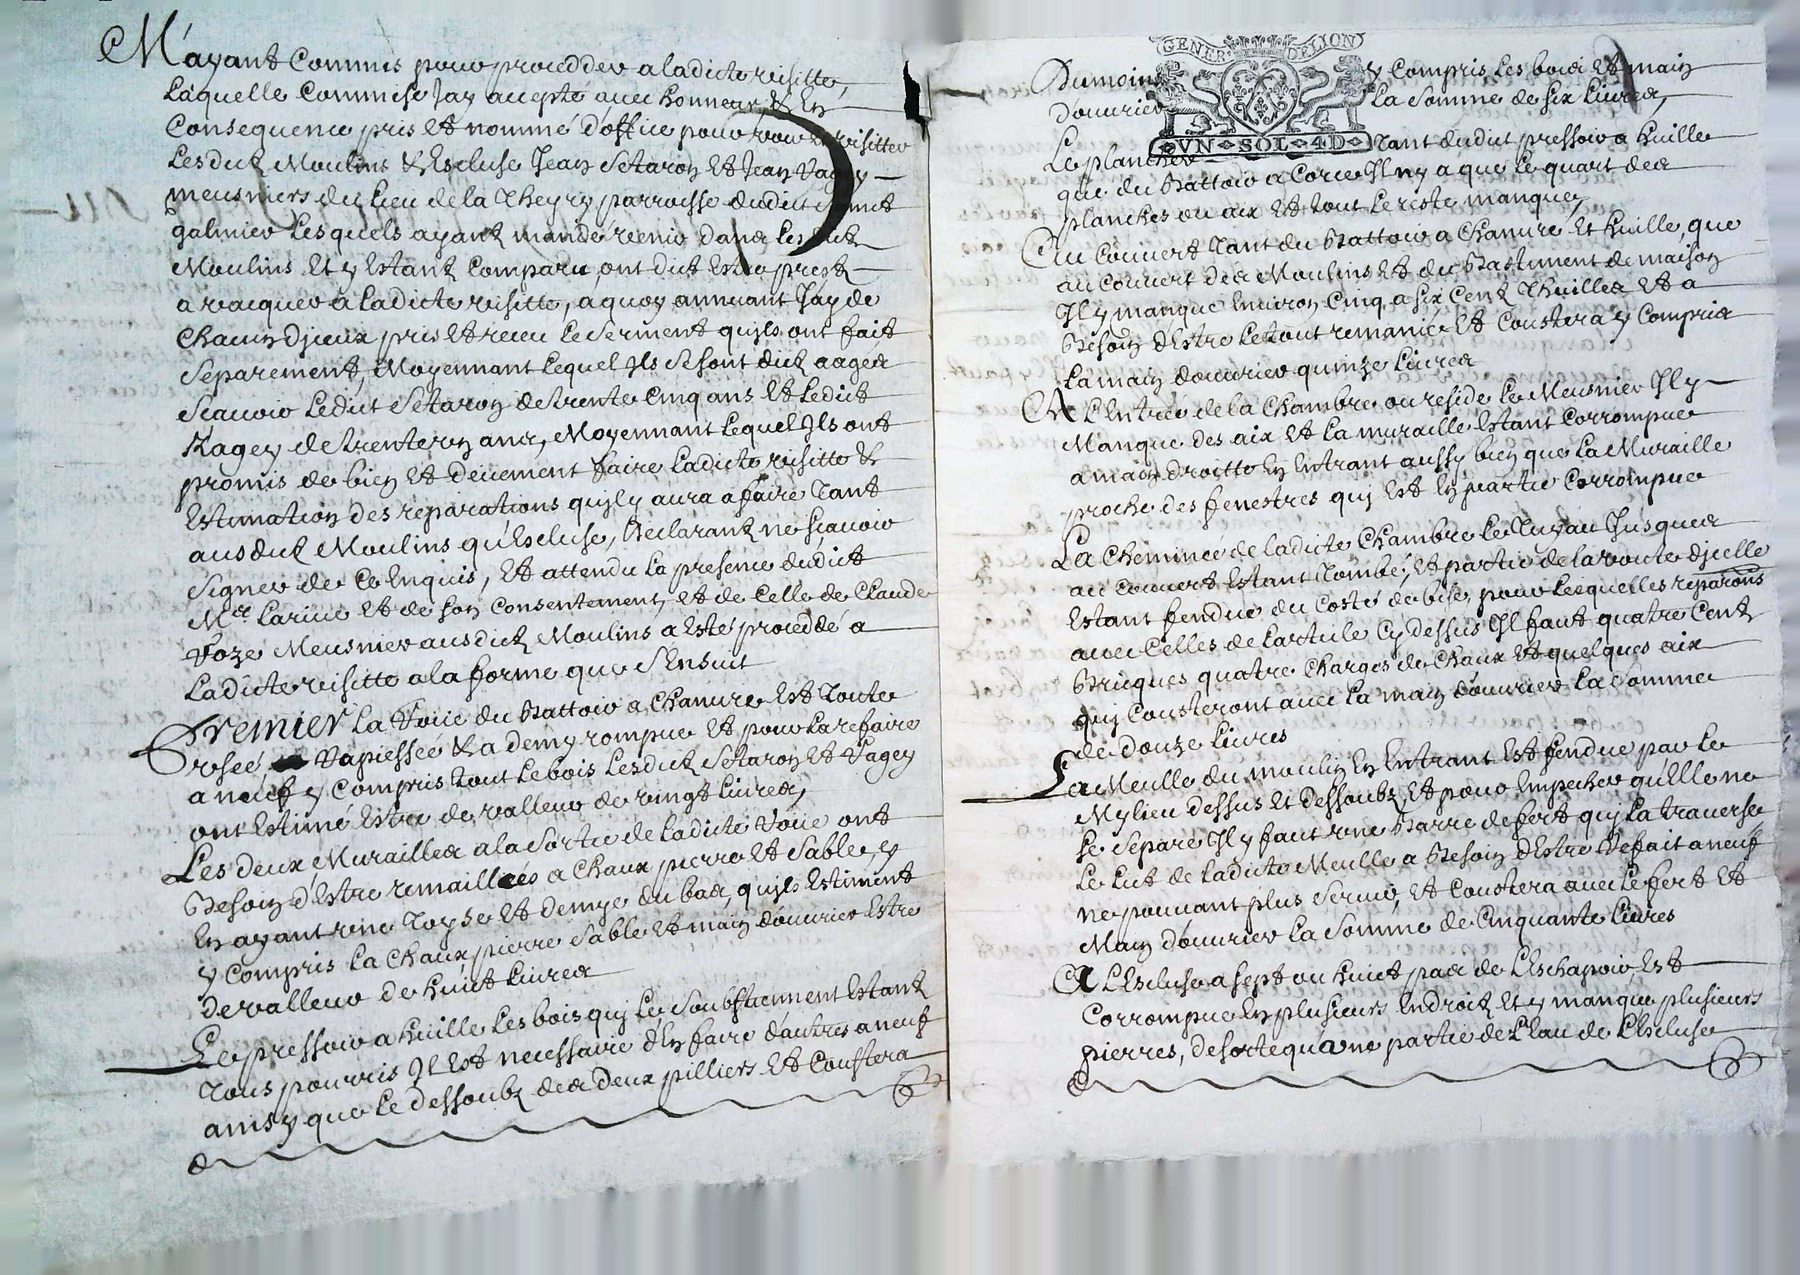 M'ayant Commis pour procedder a ladicte visitte,
Laquelle Commise Jay accepté avec honneur & En
Consequence pris et nommé d'office pour voir et visitter
Lesdictz Moulins & Escluse Jean Setaron et Jean Vagey
meusniers du Lieu de la Theyry parroisse dudict Sainct
galmier Lesquels ayantz mandé venir dans Lesdictz
Moulins et y Estantz Comparu, ont dict Estre prestz
a vacquer a Ladicte visitte, a quoy annuant Jay de
Chacun d'jceux pris et receu Le serment qu'jls ont fait
Separement, Moyennant Lequel Jls se sont dictz aagés
Scauoir Ledict Setaron de trente Cinq ans et Ledict
Vagey de trente vn ans, Moyennant Lequel Jls ont
promis de bien et deuement faire Ladicte visitte &
Estimation des reparations qu'jl y aura a faire Tant
ausdictz Moulins qu'Escluse, Declarantz ne scauoir
signer de Ce Enquis, et attendu La presence dudict
Mre Lariue et de son Consentement, et de Celle de Claude
Voze Meusnier ausdictz Moulins a Esté proceddé a
Ladicte visitte a la forme que s'Ensuit
Premier La Voüe du Battoir a Chanure Est Toute
vsée Rapiessée & a demy rompue et pour La refaire
a neuf y Compris tout Le bois Lesdictz Setaron et Vagey
ont Estimé Estre de valleur de vingt Liures,
Les deux Murailles a la sortie de Ladicte Voüe ont
Besoin d'Estre remaillées a Chaux pierre et Sable, y
En ayant vne Toyse et demye du bas, qu'jls Estiment
y Compris La Chaux pierre Sable et main d'ouurier Estre
de valleur de huict Liures
Le pressoir a huille Les bois quj Le Soubstiennent Estantz
Tous pourris Jl Est necessaire d'En faire d'autres a neuf
ainsy que Le dessoubz des deux pilliers et Coustera
Du moins y Compris Les bois et main
d'ouurier La Somme de six Liures,
GENER DE LION
VN SOL 4D
Le plancher Tant dudict pressoir a huille
que du Battoir a Corce Jl n'y a que Le quart des
planches ou aix et tout Le reste manque,
Au Couuert Tant du Battoir a Chanure et huille, que
au Couuert des Moulins et du Bastiment de maison
Jl y manque Enuiron Cinq a six Centz Thuilles et a
Besoin d'Estre Le tout remanié et Coustera y Compris
La main d'ouurier quinze Liures
A L'Entrée de la Chambre ou reside Le Meusnier Jl y
Manque des aix et La muraille Estant Corrompue
a main droitte En Entrant aussy bien que La Muraille
proche des fenestres quj Est En partie Corrompue
La Cheminée de ladicte Chambre Le Tuyau Jusques
au Couuert Estant Tombé, et partie de la voute d'jcelle
Estant fendue du Costé de bise, pour Lesquelles reparõns
auec Celles de L'article Cy dessus Jl faut quatre Centz
Bricques quatre Charges de Chaux et quelques aix
quj Cousteront auec La main d'ouurier La Somme
de douze Liures
La Meulle du moulin En Entrant Est fendue par Le
Mylieu dessus et dessoubz, et pour Empecher qu'Elle ne
se separe Jl y faut vne Barre de fert quj La trauerse
Le Lict de Ladicte Meulle a Besoin d'Estre Refait a neuf
ne pouuant plus Seruir, et Coustera auec Le fert et
Main d'ouurier La Somme de Cinquante Liures
A L'Escluse a sept ou huict pas de L'Eschapoir, Est
Corrompue En plusieurs Endroictz et y manque plusieurs
pierres, de sorte qu'ane partie de L'Eau de L'Escluse